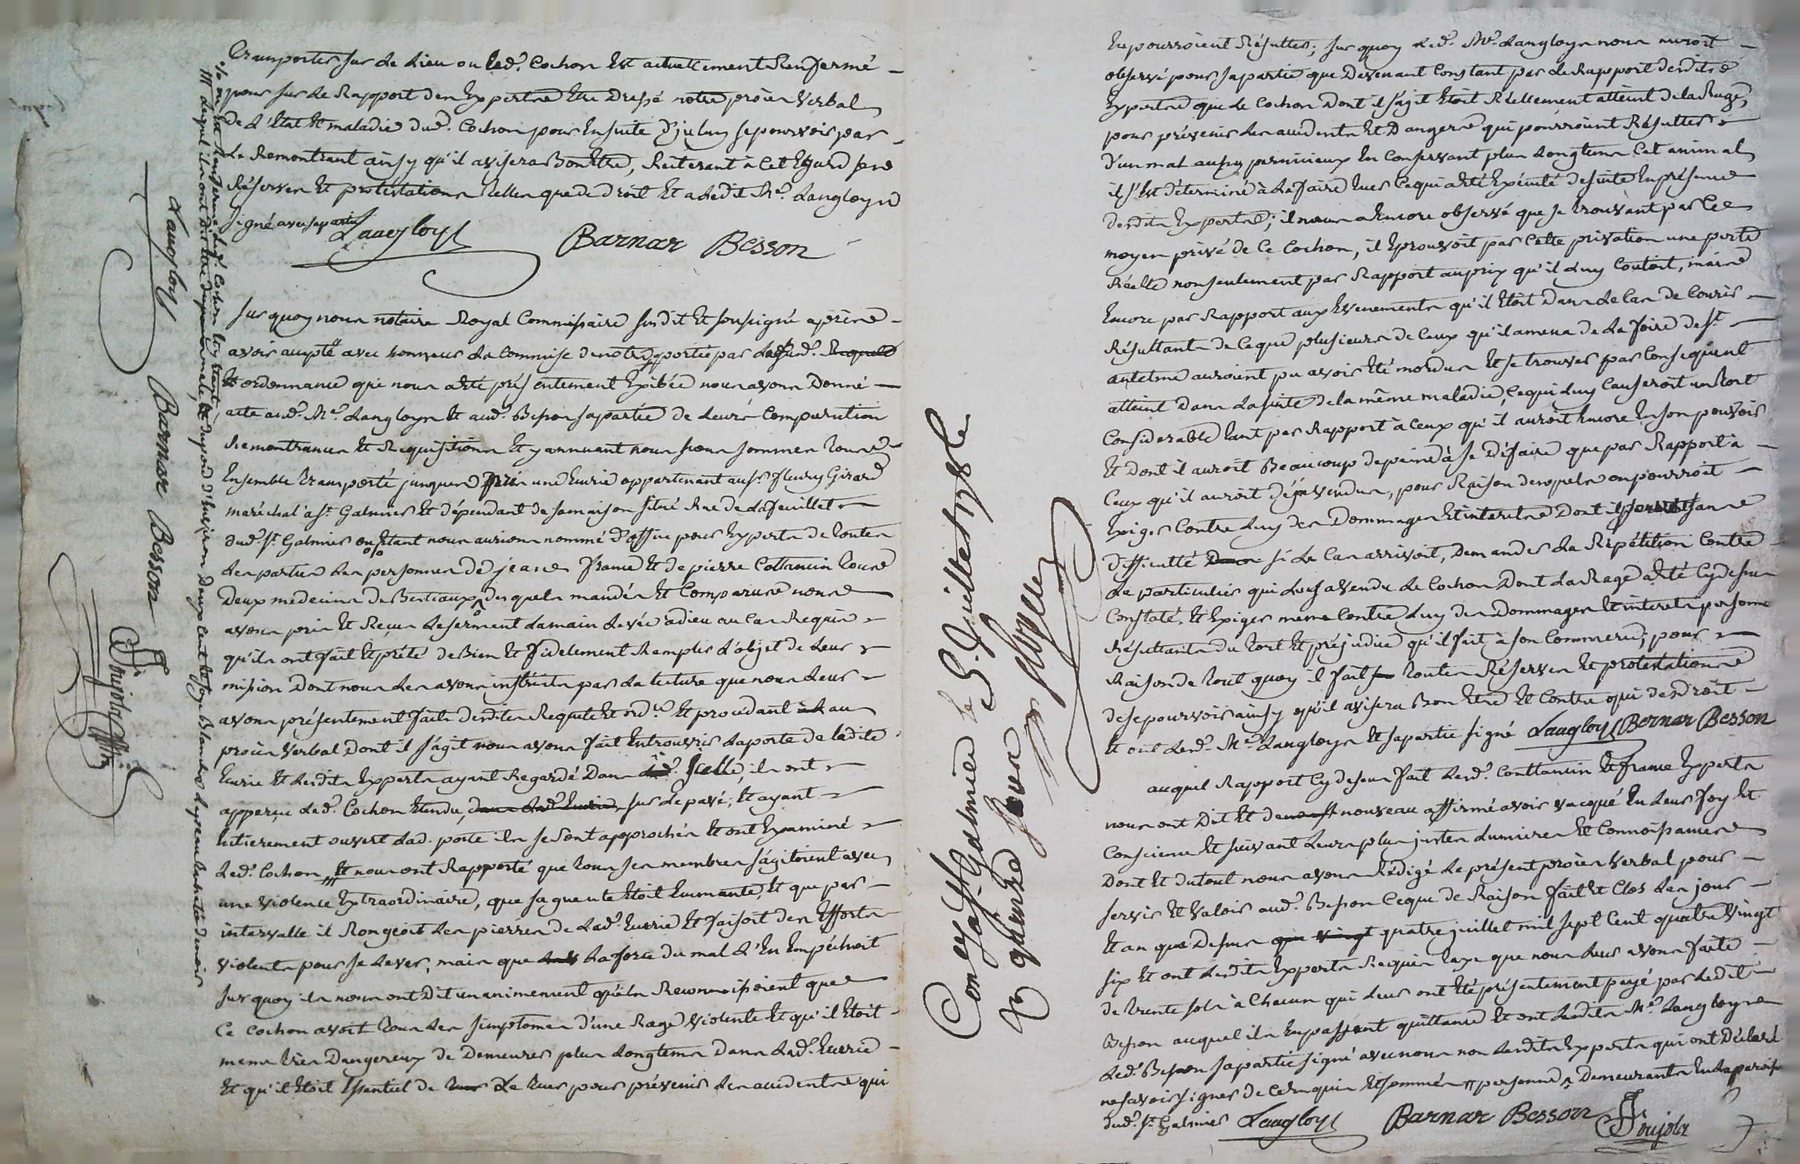 transporter sur le lieu ou led. Cochon Est actuellement Renfermé
pour sur le Rapport des Expertre Etre Dressé notre procès verbal
de L'Etat Et maladie dud. Cochon pour Ensuite d'jceluy se pourvoir par
Le Remontrant ainsy qu'il avisera Bon Etre, Reiterant à Cet Egard ses
Réserves Et protestations telles que de droit Et a Ledit Me. Langloys
signé avec sa partie Langloys Barnar Besson
sur quoy nous notaire Royal Commissaire susdit Et soussigné après
avoir accepté avec honneur La Commise de nous portée par lesd.
Et ordonnance qui nous a été présentement Exibée nous avons Donné
acte aud. Me. Langloys Et aud. Besson sa partie de Leurs Comparution
Remontrance Et Requisitions Et y annuant nous nous sommes tous
Ensemble transporté jusques une Ecurie appartenant au sr. fleury Girard
maréchal a St. Galmier Et dépendant de sa maison situé Rue de la feuillet
dud. St. Galmier ou Etant nous aurions nommé d'office pour Experts de toutes
Les parties Les personnes de jean france Et de pierre Cottancin tous
Deux medecins de Bestiaux desquels mandés Et Comparus nous
avons pris Et Reçu Le serment La main Levée a dieu au Cas Requis
qu'ils ont fait Et prêté de Bien Et fidelement Remplir L'objet de Leur
mission Dont nous Les avons instruits par La Lecture que nous Leur
avons présentement faite desdites Requete Et ord. Et procedant au
procès verbal Dont il s'agit nous avons fait Entrouvrir La porte de Ladite
Ecurie Et Lesdits Experts ayant Regardé Dans ils ont
apperçu Led. Cochon Etendu sur Le pavé, Et ayant
Entierement ouvert Lad. porte ils se sont approchés Et ont Examiné
Led. Cochon Et nous ont Rapporté que tous ses membres s'agitoient avec
une violence Extraordinaire, que sa gueule Etoit Ecumante, Et que par
intervalle il Rongeoit Les pierres de Lad. Ecurie Et faisoit des Efforts
violents pour se Lever, mais que La force du mal L'En Empéchoit
sur quoy ils nous ont Dit unanimement qu'ils Reconnoissoient que
Ce Cochon avoit tous Les simptomes d'une Rage violente Et qu'il Etoit
meme très Dangereux de Demeurer plus Longtems Dans Lad. Ecurie
Et qu'il Etoit Essentiel de Le tuer pour prévenir Les accidents qui
Langloys Barnar Besson
Conge a St. Galmier le 5. Juillet 1786 le
Rx quinze sous
En pourroient Résulter; sur quoy Led. Me. Langloys nous auroit
observé pour sa partie que Devenant Constant par Le Rapport desdits
Experts que Le Cochon Dont il s'agit Etoit Réellement atteint de la Rage,
pour prévenir Les accidents Et Dangers qui pourroient Résulter
D'un mal aussy pernicieux En Conservant plus Longtems Cet animal
il s'est déterminé à Le faire tuer Ce qui a été Exécuté de suite En présence
desdits Experts; il nous a Encore observé que se trouvant par Ce
moyen privé de Ce Cochon, il Eprouvoit par Cette privation une perte
Réelle non seulement par Rapport au prix qu'il Luy Coutoit, mais
Encore par Rapport aux Evenements qu'il Etoit Dans Le Cas de Courir
Résultants de Ce que plusieurs de Ceux qu'il amena de La foire de St.
antelme auroient pu avoir Eté mordus Et se trouver par Consequent
atteint Dans La suite de la même maladie, Ce qui Luy Causeroit un tort
Considerable tant par Rapport à Ceux qu'il auroit Encore En son pouvoir
Et Dont il auroit Beaucoup de peine à se Défaire que par Rapport à
Ceux qu'il auroit déja vendus, pour Raison desquels on pourroit
Exiger Contre Luy des Dommages Et interets Dont il sans
difficulté si Le Cas arrivoit, Demander La Répétition Contre
Le particulier qui Luy a vendu Le Cochon Dont La Rage a été Cy dessus
Constaté, Et Exiger meme Contre Luy des Dommages Et interets personnels
Résultants du tort Et préjudice qu'il fait à son Commerce; pour
Raison de tout quoy il fait toutes Réserves Et protestations
de se pourvoir ainsy qu'il avisera Bon Etre Et Contre qui de droit
Et ont Lesd. Me. Langloys Et sa partie signé Langloys Bernar Besson
auquel Rapport Cy dessus fait Lesd. Cottancin Et france Experts
nous ont Dit Et de nouveau affirmé avoir vacqué En Leur foy Et
Conscience Et suivant Leurs plus justes Lumieres Et Connoissances
Dont Et du tout nous avons Rédigé Le présent procès verbal pour
servir Et valoir aud. Besson Ce que de Raison fait Et Clos Les jour
Et an que Dessus quatre juillet mil sept Cent quatre vingt
six Et ont Lesdits Experts Requis taxe que nous Leur avons faite
de trente sols à Chacun qui Leur ont Eté présentement payé par Ledit
Besson auquel ils En passent quittance Et ont Lesdits Me. Langloys
Led. Besson sa partie signé avec nous non Lesdits Experts qui ont Déclaré
ne savoir signer de Ce Enquis Et sommés personnes Demeurants En La paroisse
dud. St. Galmier Langloys Barnar Besson